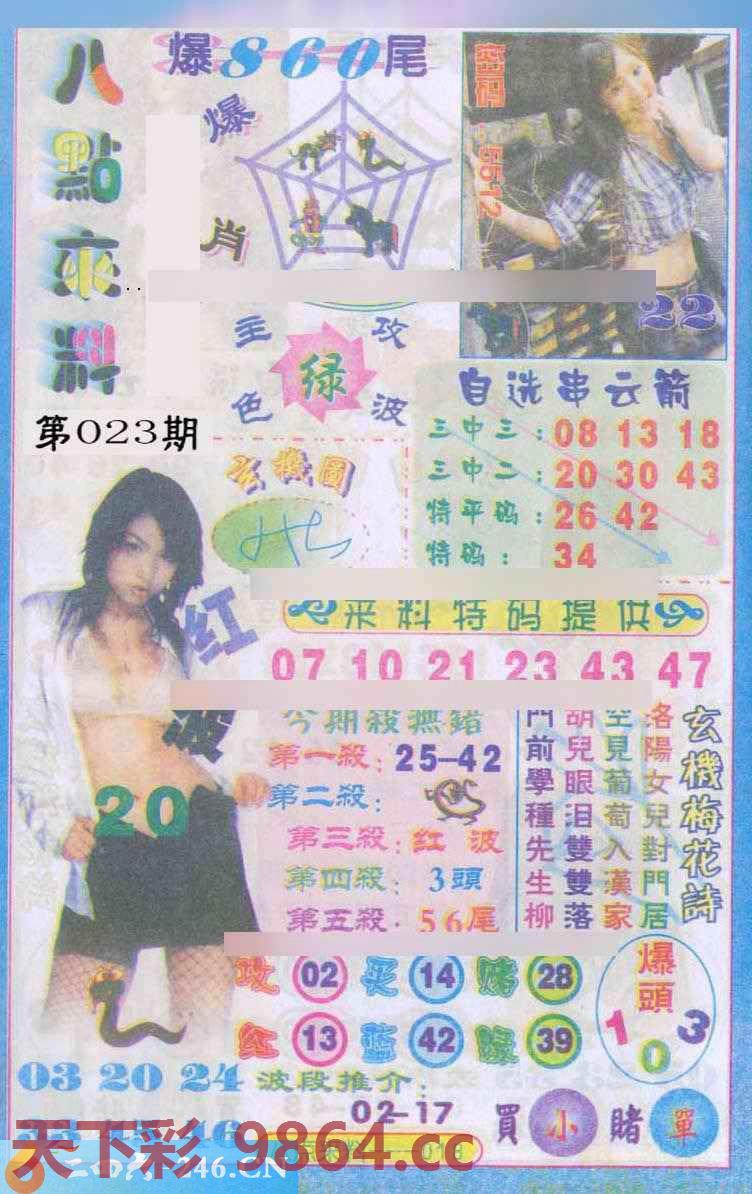 八點來料
爆860尾
爆肖
密码:5512
22
主攻
绿
色波
第023期
玄機圖
自选串云箭
三中三:08 13 18
三中二:20 30 43
特平码:26 42
特码:34
红波
20
来料特码提供
07 10 21 23 43 47
今期殺無錯
第一殺:25-42
第二殺:
第三殺:红波
第四殺:3頭
第五殺:56尾
玄機梅花詩
洛陽女兒對門居
空見葡萄入漢家
胡兒眼泪雙雙落
門前學種先生柳
攻 02 买 14 赌 28
红 13 蓝 42 绿 39
爆頭
1 0 3
03 20 24
波段推介:
02-17
買小賭單
天下彩 9864.cc
二四六 246.CN